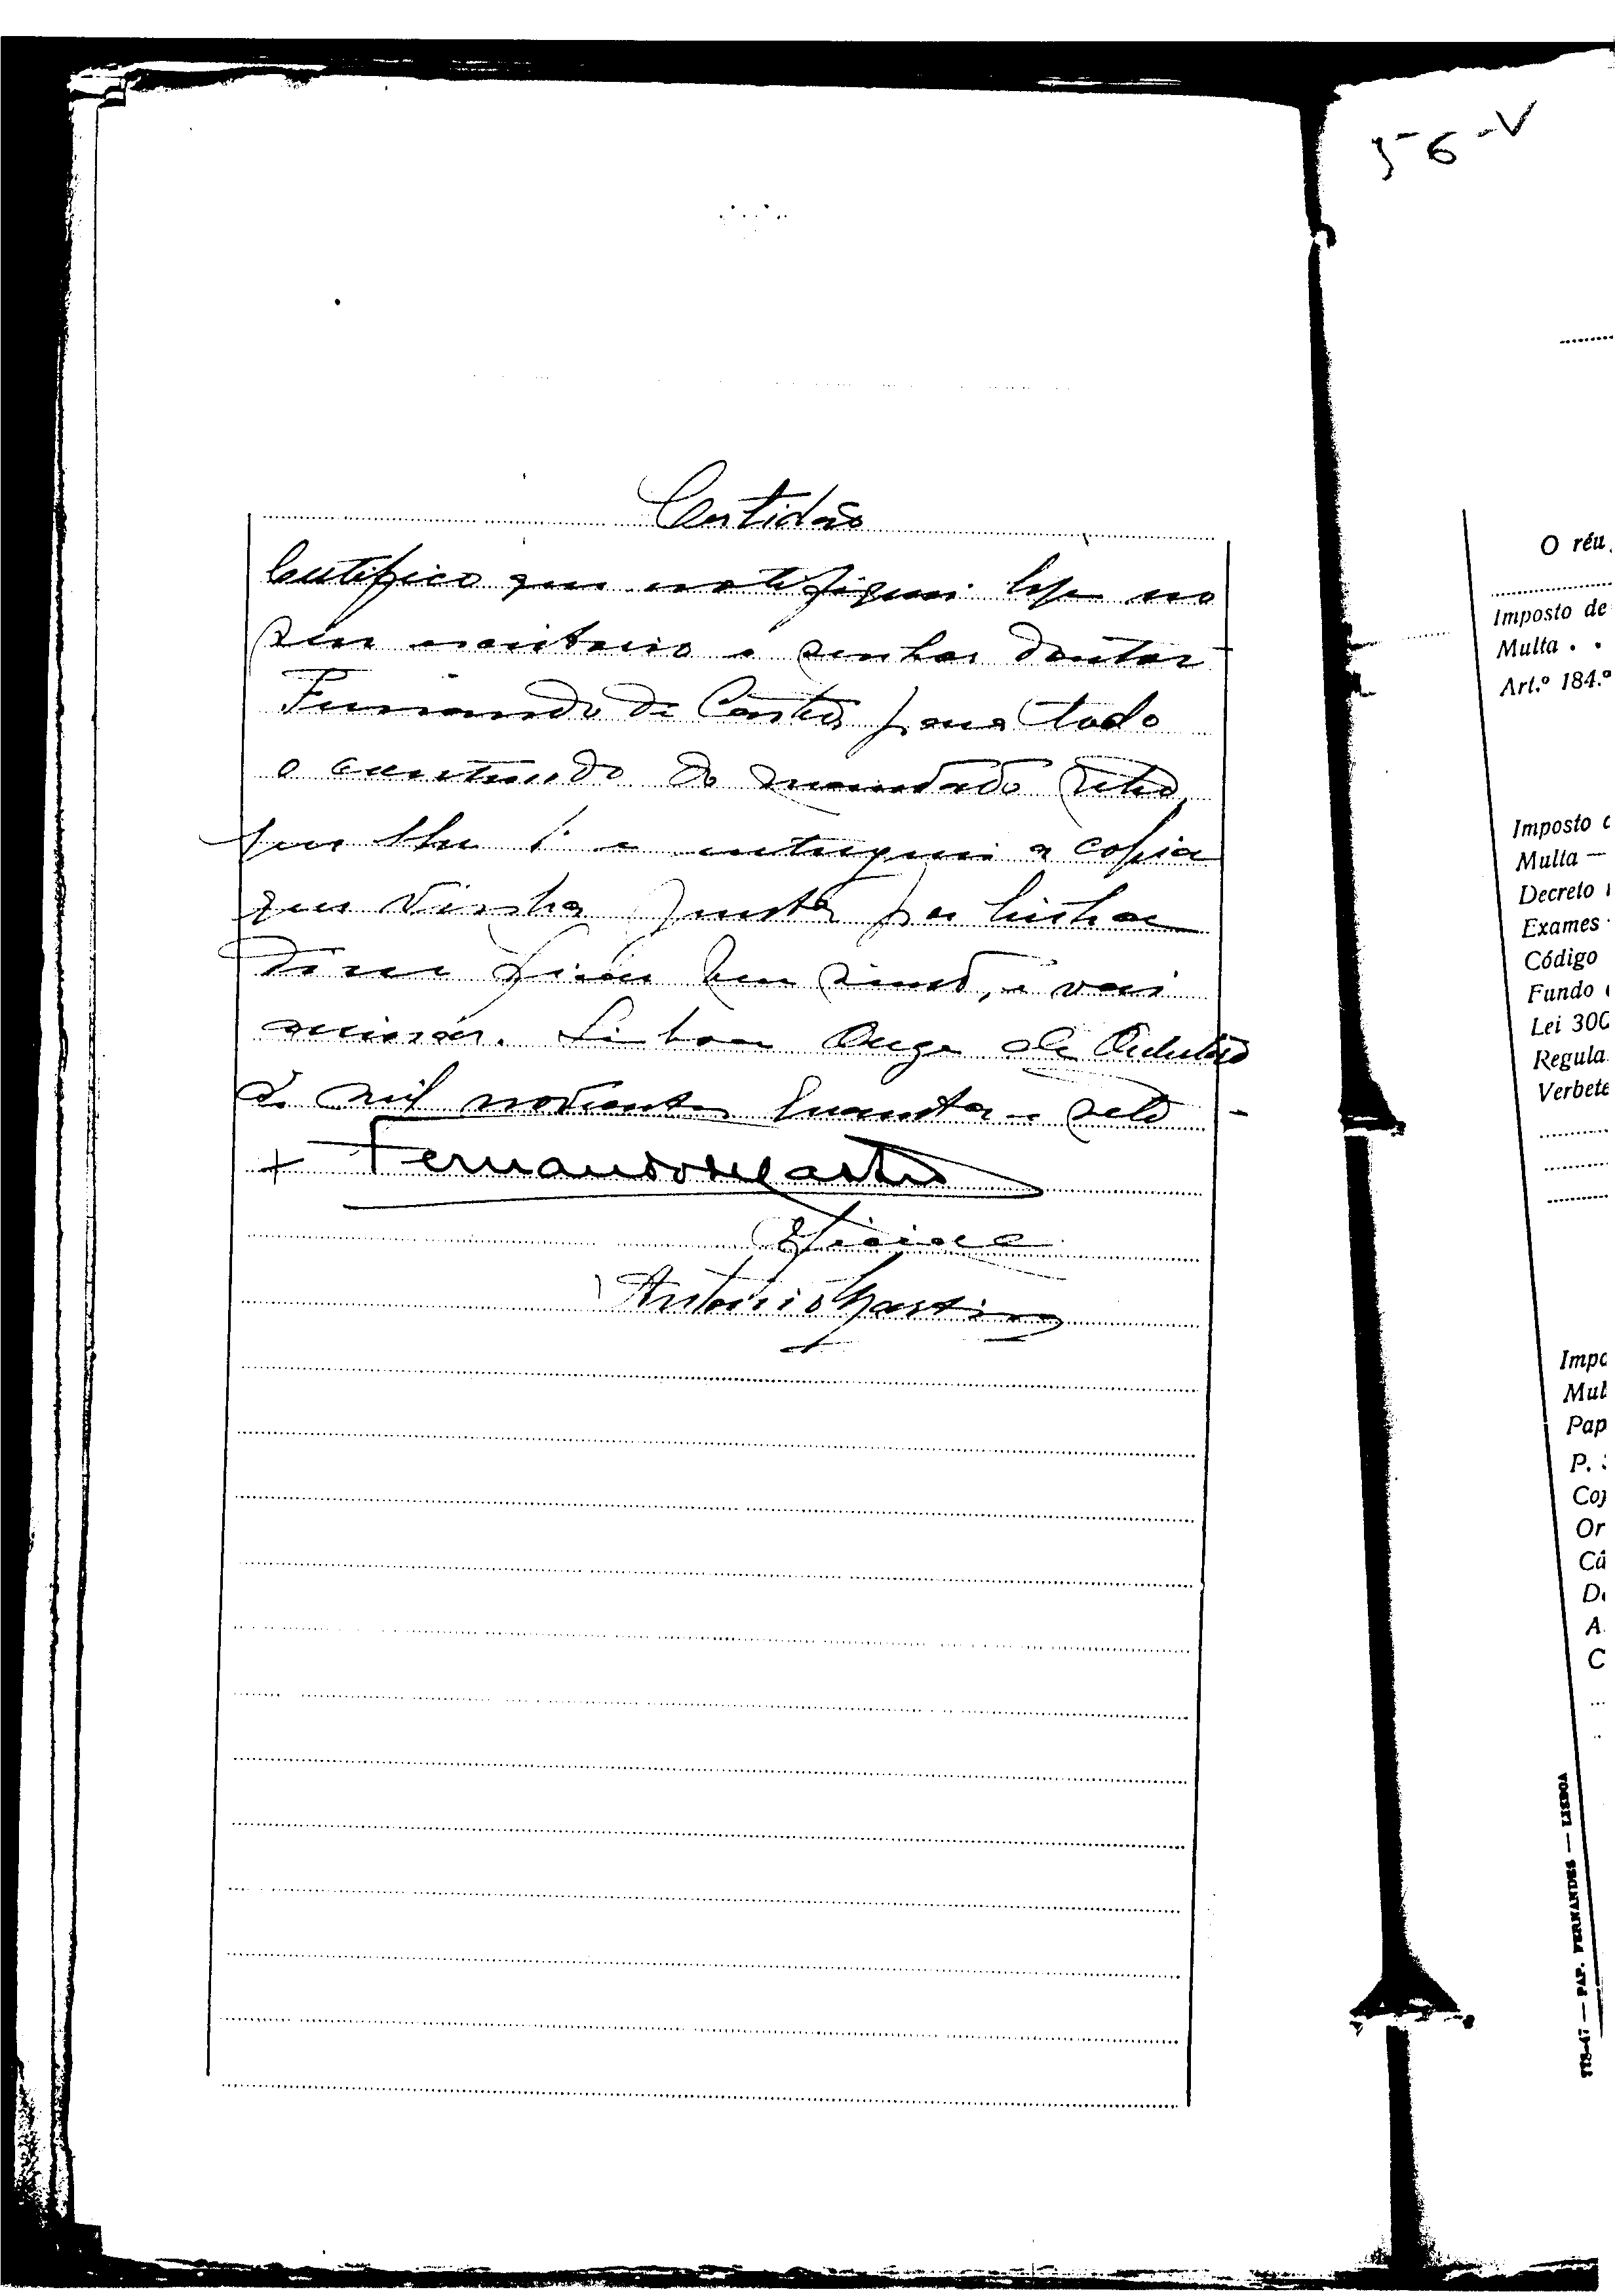 Certidão
Certifico que notifiquei hoje no
seu escritorio o senhor doutor
Fernando de Castro para todo
o conteudo do mandado retro
que lhe li e entreguei a copia
que vinha junta por linha
disse ficou bem ciente, e vai
assinar. Lisboa Onze de Outubro
de mil novecentos quarenta e sete -
+ Fernando de Castro
Oficial
Antonio Martins
56-V
O réu
Imposto de
Multa . .
Art.º 184.º
Imposto
Multa —
Decreto
Exames
Código
Fundo
Lei 300
Regula
Verbete
Impo
Mul
Pap
P.
Co
Or
Câ
D
A
C
778-47 — PAP. FERNANDES — LISBOA